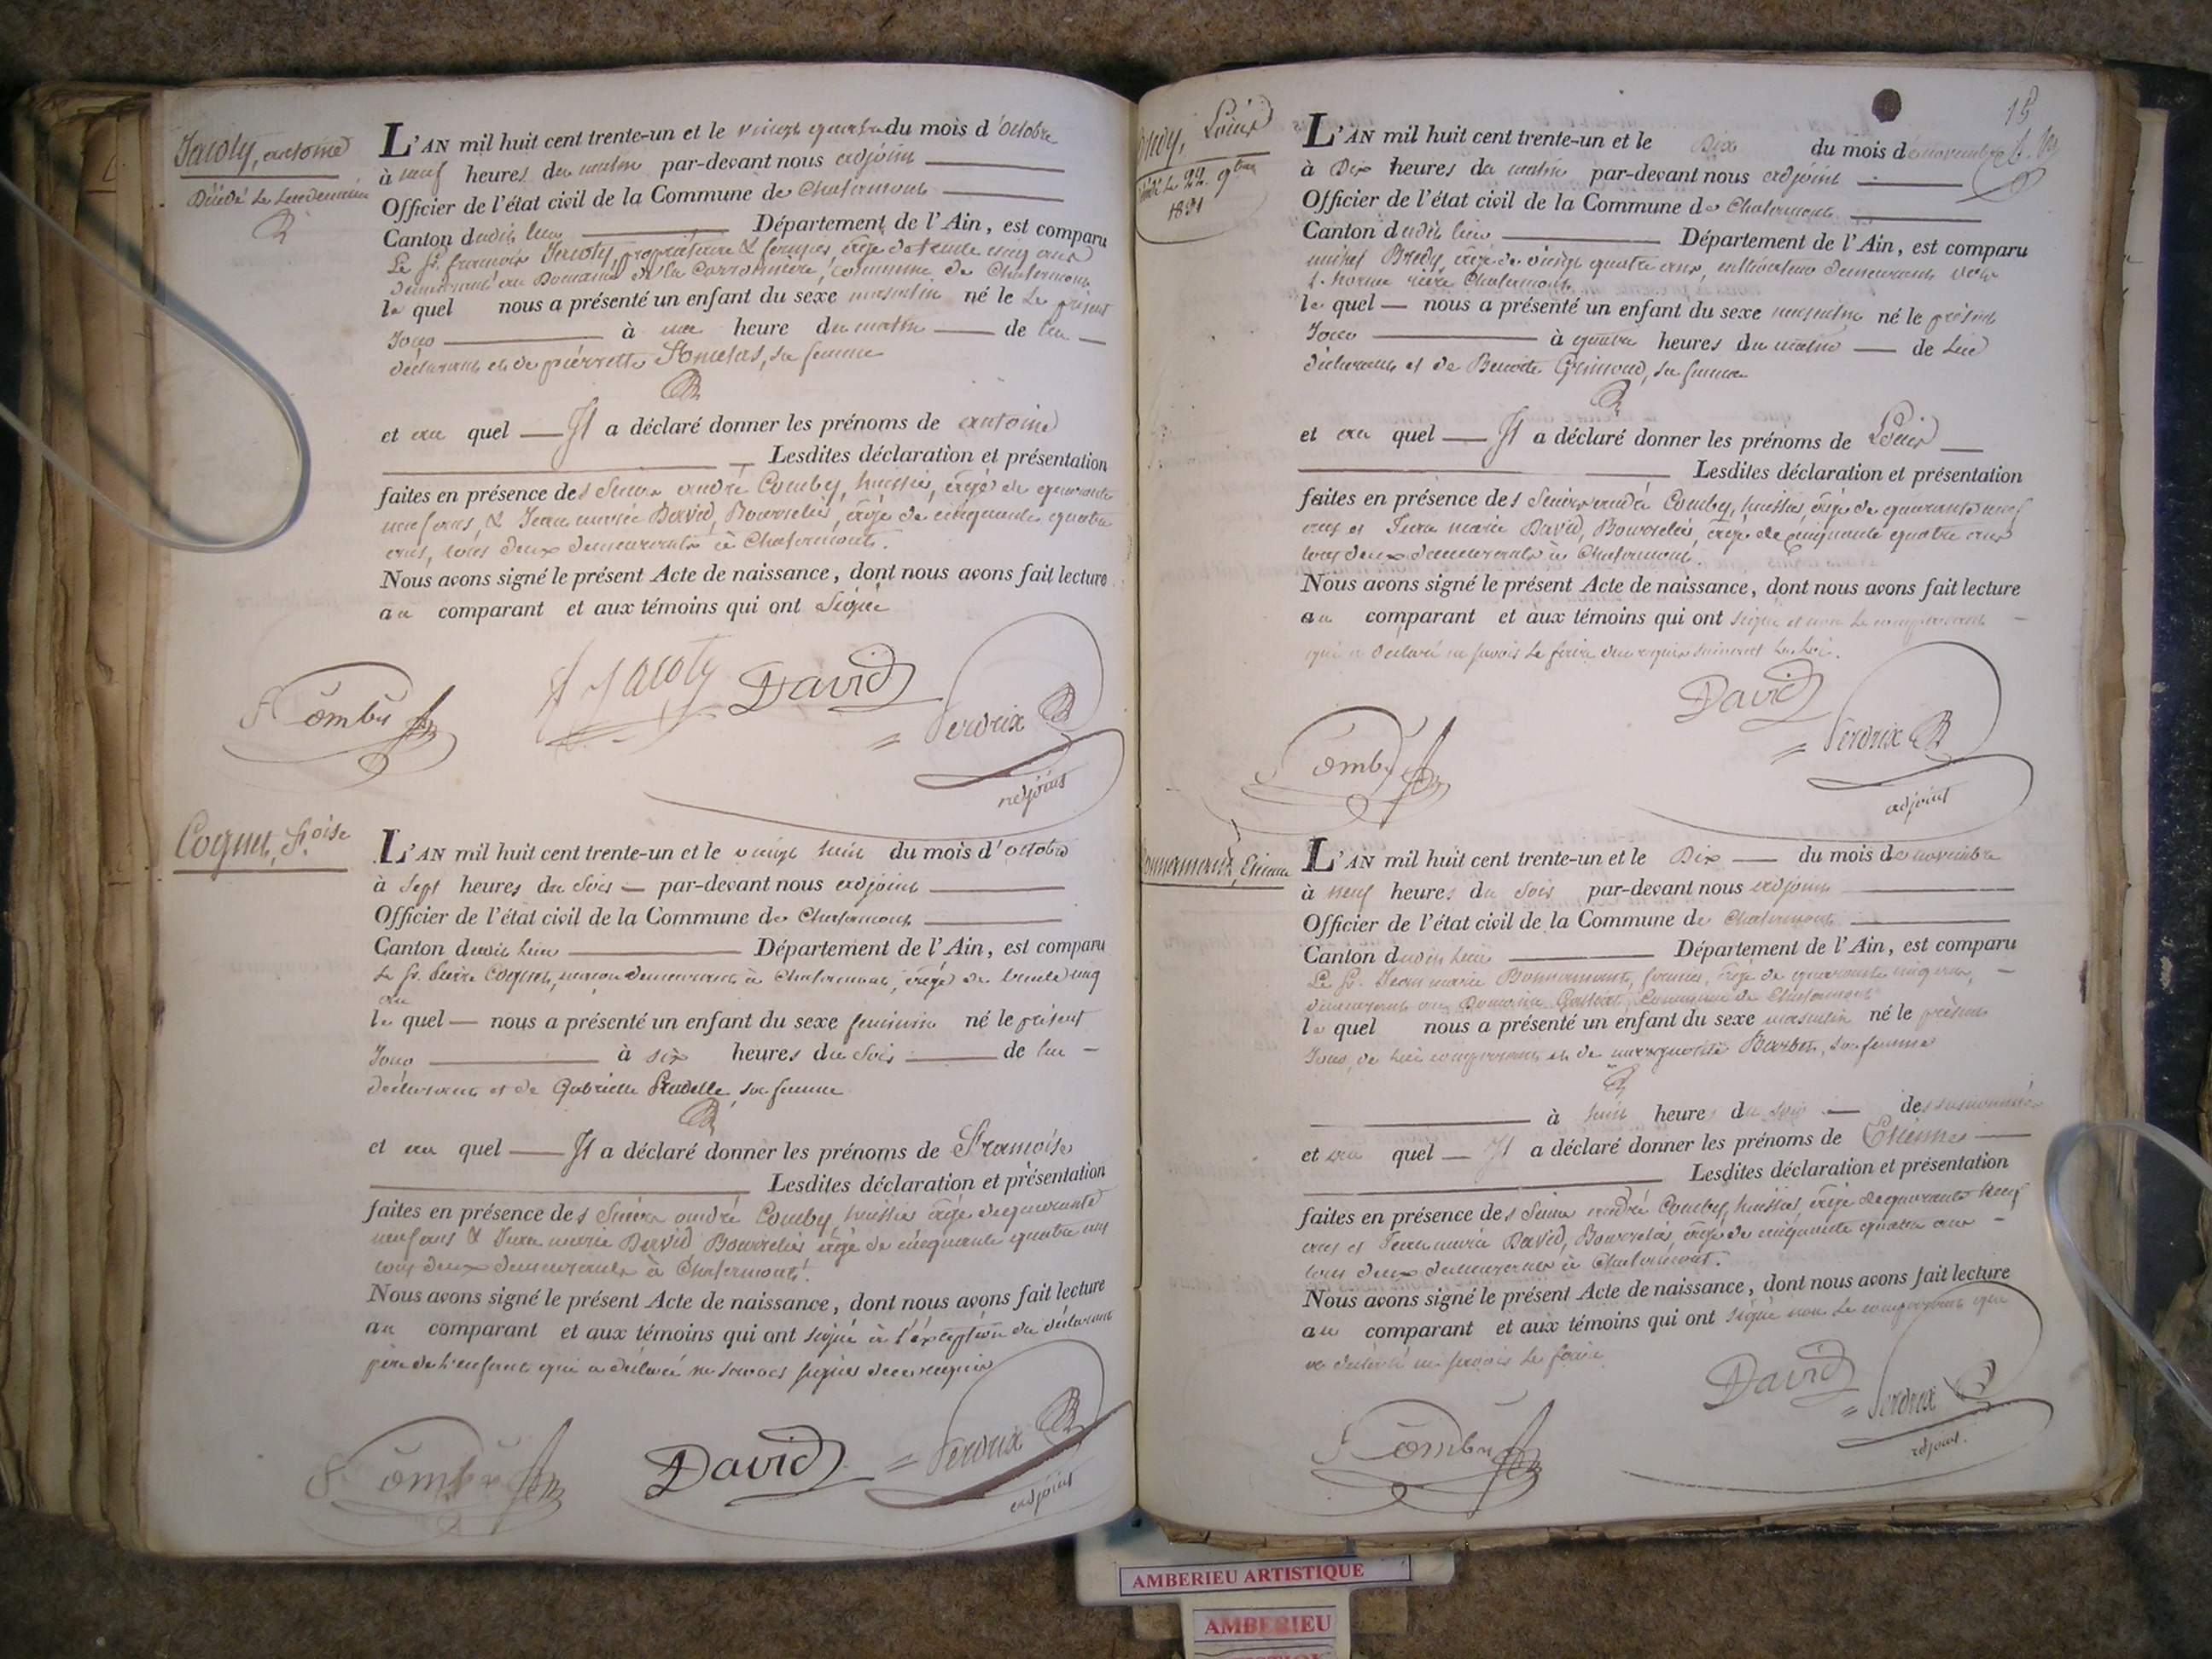 Jacoty, antoine
Décédé le lendemain
L'AN mil huit cent trente-un et le vingt quatre du mois d'octobre
à neuf heures du matin par-devant nous adjoint
Officier de l'état civil de la Commune de Chalamont
Canton dudit lieu Département de l'Ain, est comparu
Le Sr. françois Jacoty, propriétaire & fermier âgé de trente cinq ans
demeurant au Domaine de la Carronnière, commune de Chalamont
lequel nous a présenté un enfant du sexe masculin né le le présent
Jour à une heure du matin de lui
déclarant et de pierrette, sa femme
et au quel Il a déclaré donner les prénoms de antoine
Lesdites déclaration et présentation
faites en présence des Sieurs andré Comby, huissier, âgé de quarante
neuf ans, & Jean marie David, Bourrelier, âgé de cinquante quatre
ans, tous deux demeurants à Chalamont.
Nous avons signé le présent Acte de naissance, dont nous avons fait lecture
au comparant et aux témoins qui ont Signé
Comby
Jacoty
David
Perdrix
adjoint
Coquet, Foise
L'AN mil huit cent trente-un et le vingt huit du mois d'octobre
à sept heures du soir par-devant nous adjoint
Officier de l'état civil de la Commune de Chalamont
Canton dudit lieu Département de l'Ain, est comparu
Le Sr. Pierre Coquet, maçon demeurant à Chalamont, âgé de trente cinq
ans
lequel nous a présenté un enfant du sexe feminin né le présent
Jour à six heures du soir de lui
déclarant et de Gabrielle Pradelle, sa femme
et au quel Il a déclaré donner les prénoms de Francoise
Lesdites déclaration et présentation
faites en présence des Sieurs andré Comby, huissier âgé de quarante
neuf ans & Jean marie David Bourrelier âgé de cinquante quatre ans
tous deux demeurants à Chalamont.
Nous avons signé le présent Acte de naissance, dont nous avons fait lecture
au comparant et aux témoins qui ont signé à l'exception du déclarant
père de l'enfant qui a déclaré ne savoir signer de ce requis
Comby
David
Perdrix
adjoint
15
Bredy, Louis
22. 9bre
1831
L'AN mil huit cent trente-un et le Dix du mois de novembre
à Dix heures du matin par-devant nous adjoint
Officier de l'état civil de la Commune de Chalamont
Canton dudit lieu Département de l'Ain, est comparu
michel Bredy âgé de vingt quatre ans, cultivateur demeurant
Chalamont
lequel nous a présenté un enfant du sexe masculin né le présent
Jour à quatre heures du matin de lui
déclarant et de Benoite Grimoud, sa femme
et au quel Il a déclaré donner les prénoms de Louis
Lesdites déclaration et présentation
faites en présence des Sieurs andré Comby, huissier âgé de quarante neuf
ans et Jean marie David, Bourrelier, âgé de cinquante quatre ans
tous deux demeurants à Chalamont.
Nous avons signé le présent Acte de naissance, dont nous avons fait lecture
au comparant et aux témoins qui ont signé et non le comparant
qui a déclaré ne savoir le faire de ce requis suivant la loi.
Comby
David
Perdrix
adjoint
Bonnamour, Etienne
L'AN mil huit cent trente-un et le Dix du mois de novembre
à neuf heures du soir par-devant nous adjoint
Officier de l'état civil de la Commune de Chalamont
Canton dudit lieu Département de l'Ain, est comparu
Le Sr. Jean marie Bonnamour, fermier, âgé de quarante cinq ans,
demeurant au Domaine Commune de Chalamont
lequel nous a présenté un enfant du sexe masculin né le présent
Jour, de lui comparant et de marguerite Barbet, sa femme
à huit heures du soir des susnommés
et au quel Il a déclaré donner les prénoms de Etienne
Lesdites déclaration et présentation
faites en présence des Sieurs andré Comby, huissier, âgé de quarante neuf
ans et Jean marie David, Bourrelier, âgé de cinquante quatre ans
tous deux demeurants à Chalamont.
Nous avons signé le présent Acte de naissance, dont nous avons fait lecture
au comparant et aux témoins qui ont signé non le comparant qui
a déclaré ne savoir le faire
Comby
David
Perdrix
adjoint.
AMBERIEU ARTISTIQUE
AMBERIEU